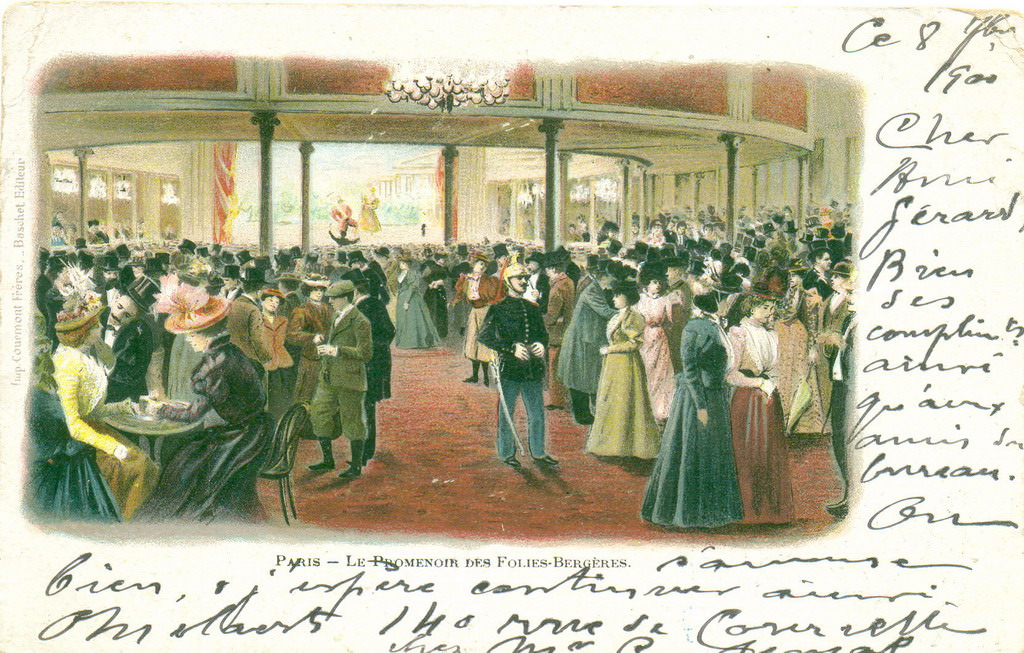 Ce 8 7bre
1900
Cher
Ami
Gérard
Bien
des
complimts
ainsi
qu'aux
amis du
bureau.
On
PARIS – LE PROMENOIR DES FOLIES-BERGÈRES.
s'amuse
bien, & j'espère continuer ainsi
140 rue de
chez Mr
Imp. Couemont Frères. _ Baschet Editeur